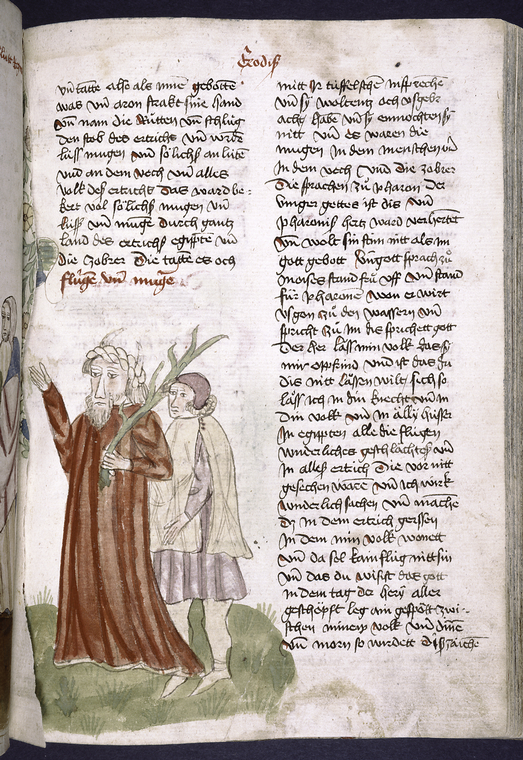 Exodus
vnd tatte also als inne gebotte
was vnd aron strakt sine hand
vnd nam die Rutten vnd schlůg
den stob des ertrichs vnd wrde
lüss mugen vnd sölichs an lüte
vnd an dem vech vnd alles
volk des ertrichs das ward be
kert vol sölichs mugen vnd
lüss vnd muge durch gantz
land des ertrichs egipte vnd
die zobrer Die tatte es och
flügen vnd muge
mitt Ir tüffelschen
vnd sy woltent och
habe vnd sy enmochten sy
nitt vnd es waren die
mugen In dem menschen vnd
In dem vech vnd die zobrer
Die sprachen zů pharon Der
vinger gottes ist dis vnd
pharonis hertz ward verhertet
vnd wolt sin stim nitt als im
gott gebott vnd gott sprach zů
moises stand frů vff vnd stand
für pharone wen er wirt
vsgon zů den wassern vnd
spricht zů Im dis sprichett gott
Der her lass min volk das sy
mir opfrind vnd ist das du
dis nitt lässen wilt sich so
lass ich in din knecht vnd in
Din volk vnd in älly hüsser
In egypten alle die flügen
wunderliches geschlachtes vnd
In alles ertrich Die vor nitt
gesechen ware vnd ich wirk
wunderlich sachen vnd mache
In dem ertrich gerssen
In dem min volk wonett
vnd da sol kain flüg nitt sin
vnd das du wissist das gott
in dem tag der herr aller
geschöpft leg ain gespött zwi
schen minem volk vnd dime
vnd morn so wirdett dis zaiche